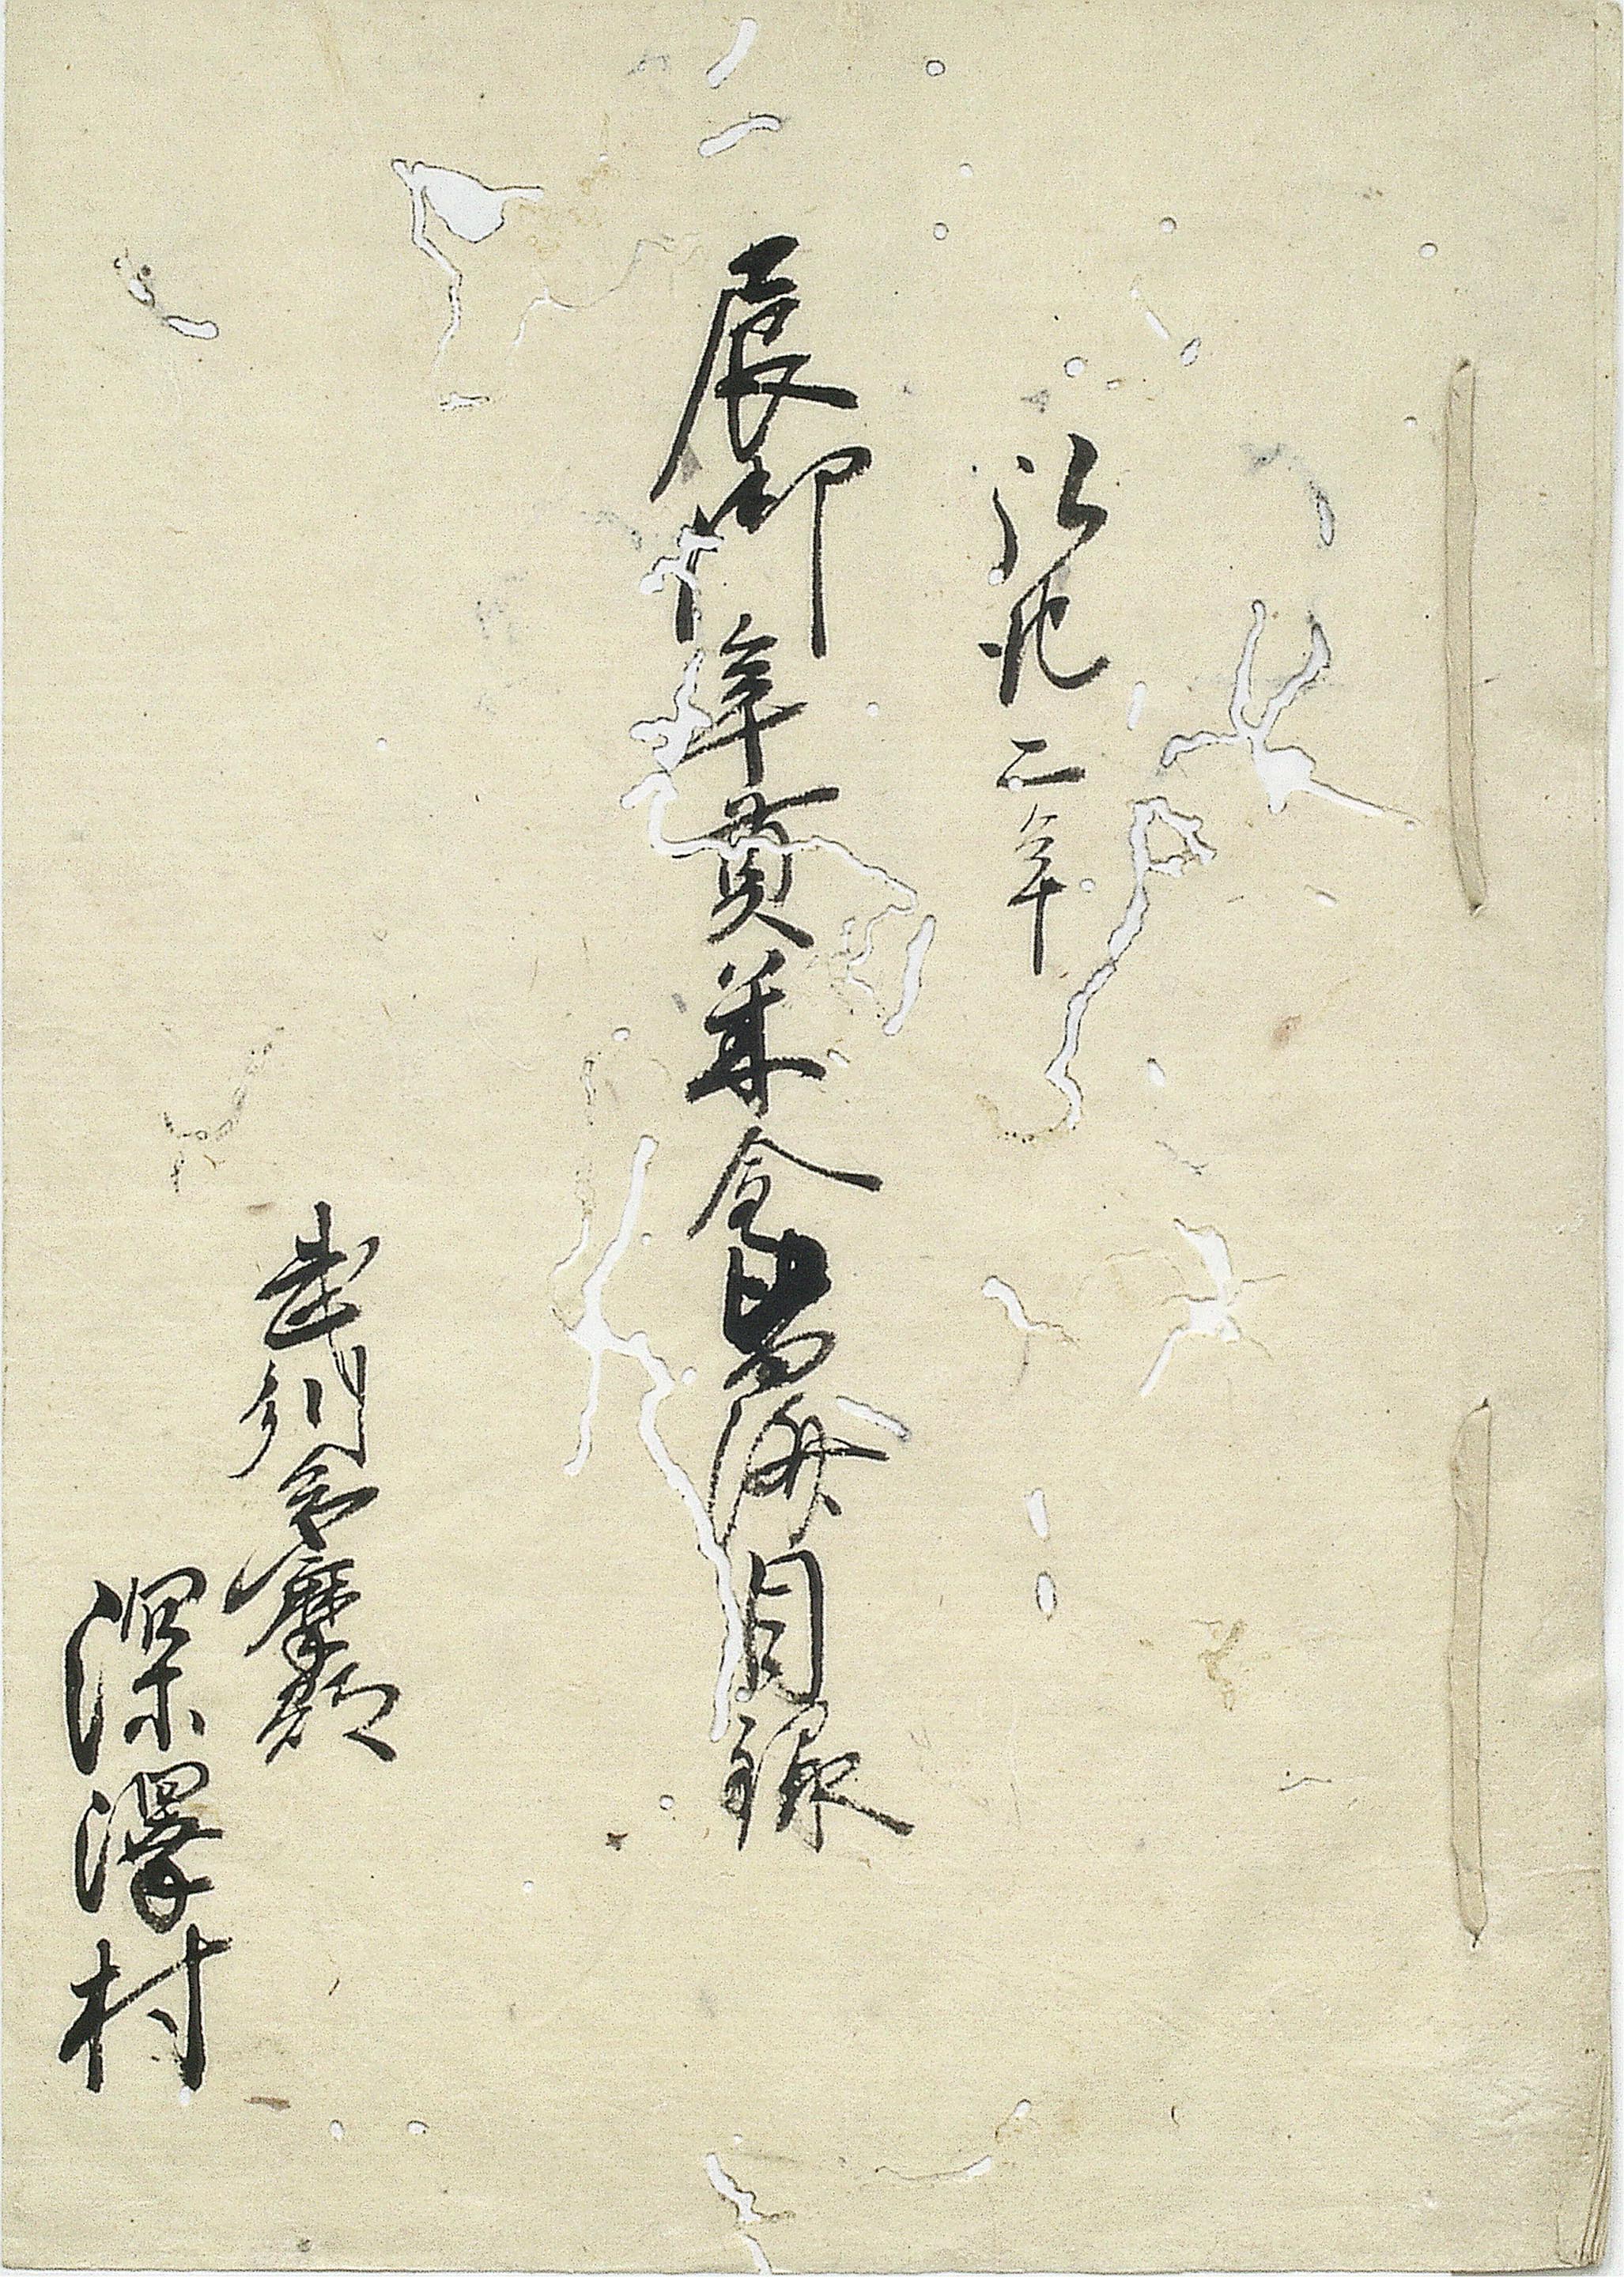 弘化二年
辰御年貢米金皆済目録
武州多摩郡
深澤村